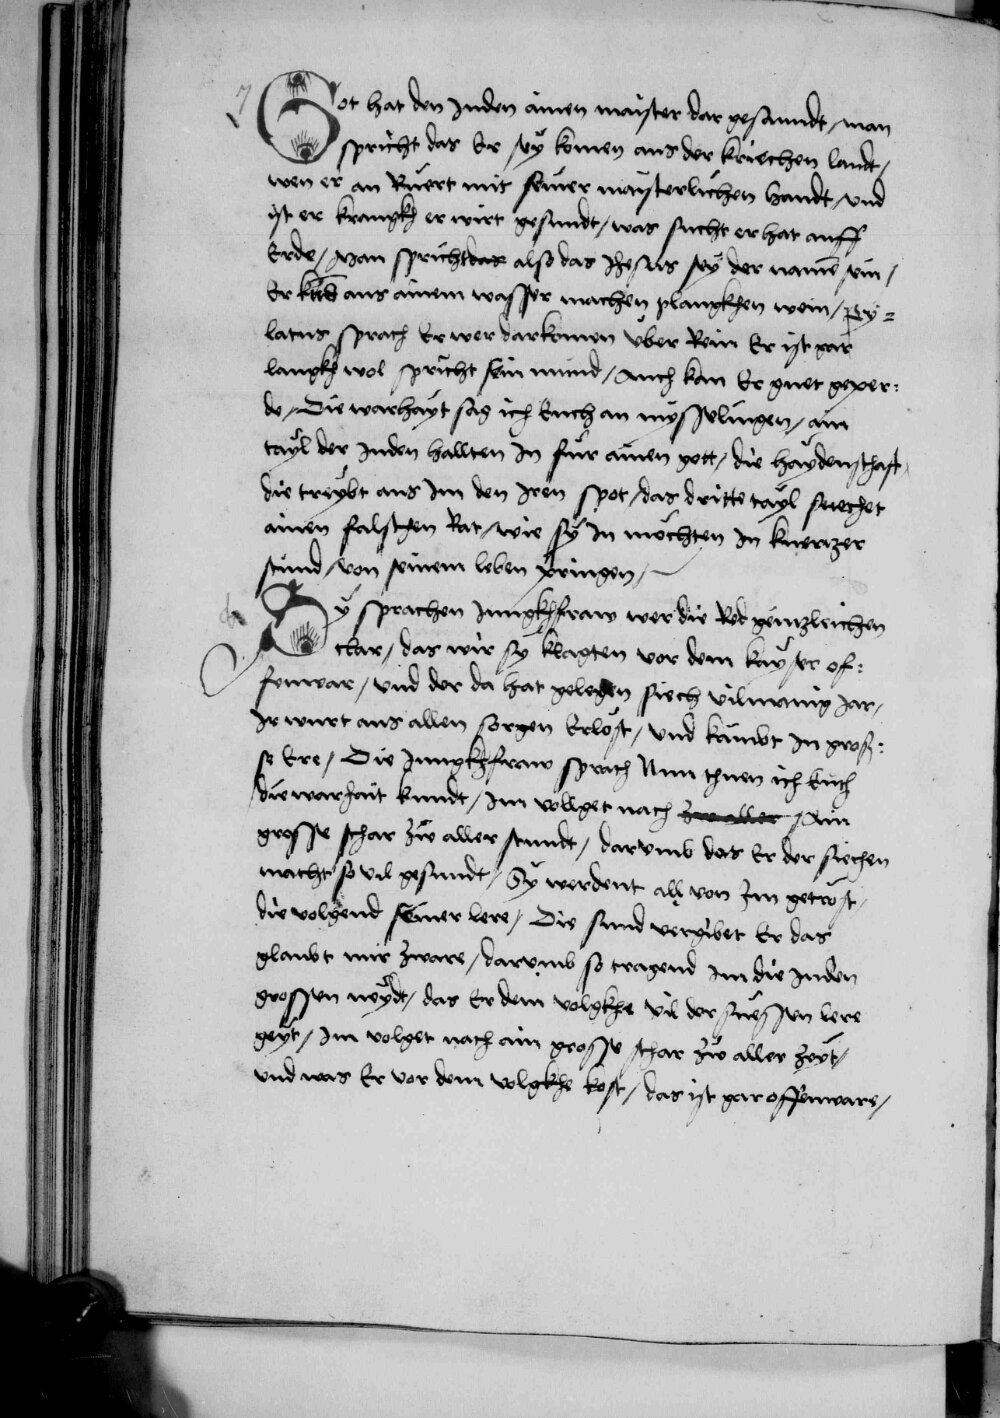 7 Got hat den Juden ainen maister dar gesanndt / man
spricht das Er sey komen aus der kriechen landt /
wen er an Ruert mit seiner maisterlichen handt / vnd
ist er krangkh er wirt gesundt / was sucht er hat auff
Erde / Man spricht das also das Jhesus sey der namē sein /
Er kan aus ainem wasser machen plangkhen wein / Py=
latus sprach Er wer dar komen vber Rein Er ist gar
langkh wol spricht sein mund / Auch kan Er guet geper=
de / Die warhayt sag ich Euch an mysselingen / ain
tayl der Juden hallten In fur ainen gott / die haydenschafft /
die treybt aus Im den Iren spot / das dritte tayl suechet
ainen falschen Rat / wie sy In mochten In kuerczer
stund / von seinem leben pringen /
8 Sy sprachen Jungkhfraw wer die Red genczleichen
clar / das wir sy klagten vor dem kayser of=
fenwar / vnd der da hat gelegen siech vil manig Jar /
Ir wurt aus allen sorgen Erlost / vnd kämbt In gros=
se Ere / Die Jungkhfraw sprach Nun thuen ich Euch
die warhait kundt / Im vollget nach zw aller / Ain
grosse schar zw aller stundt / darvmb das Er der siechen
macht so vil gesundt / Sy werdent all von Im getrost /
die volgend seiner lere / Die sund vergibet Er das
glaubt mir zware / darvmb so tragend Im die Juden
grossen neydt / das Er dem volgkhe vil der suessen lere
geyt / Im volget nach ain grosse schar zw aller zeyt /
vnd was Er vor dem volgkhe kost / das ist gar offenware /